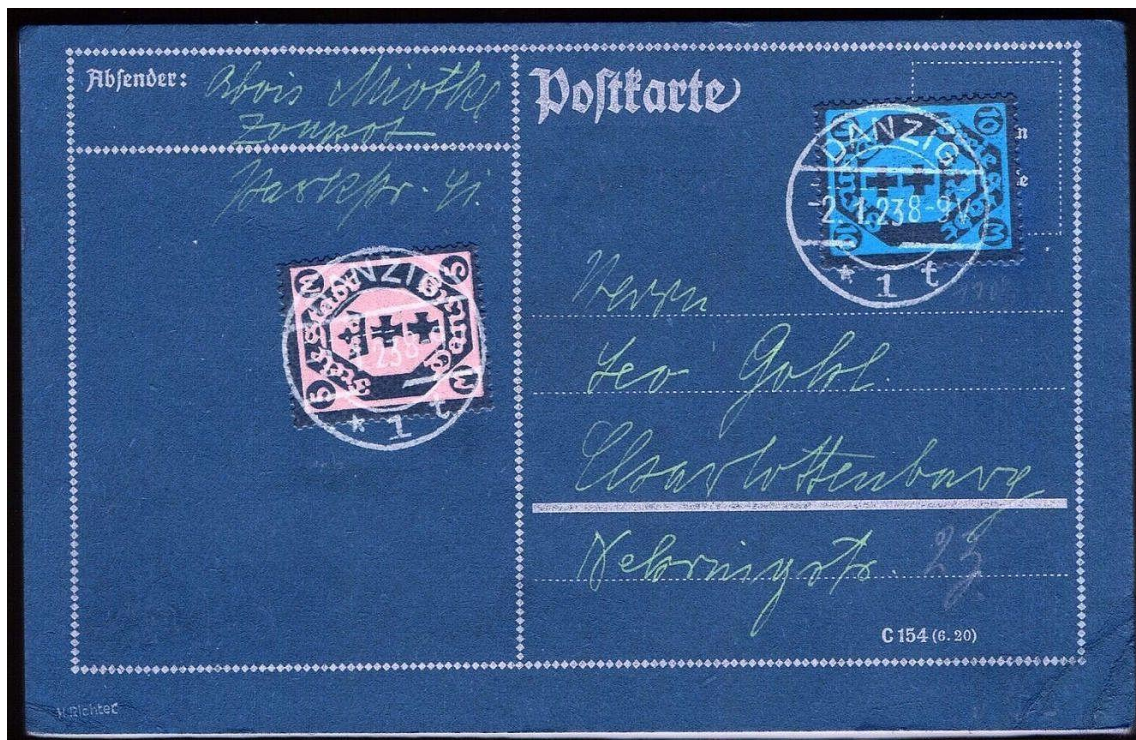 Absender: Alois Miotke
Zoppot
Parkstr. 41.
Postkarte
DANZIG
2.1.23 8-9V
* 1 t
10 M
DANZIG
23 8
* 1 t
5 M
Herrn
Leo Gohl.
Charlottenburg
Nehringstr. 23
C 154 (6. 20)
H.Richter